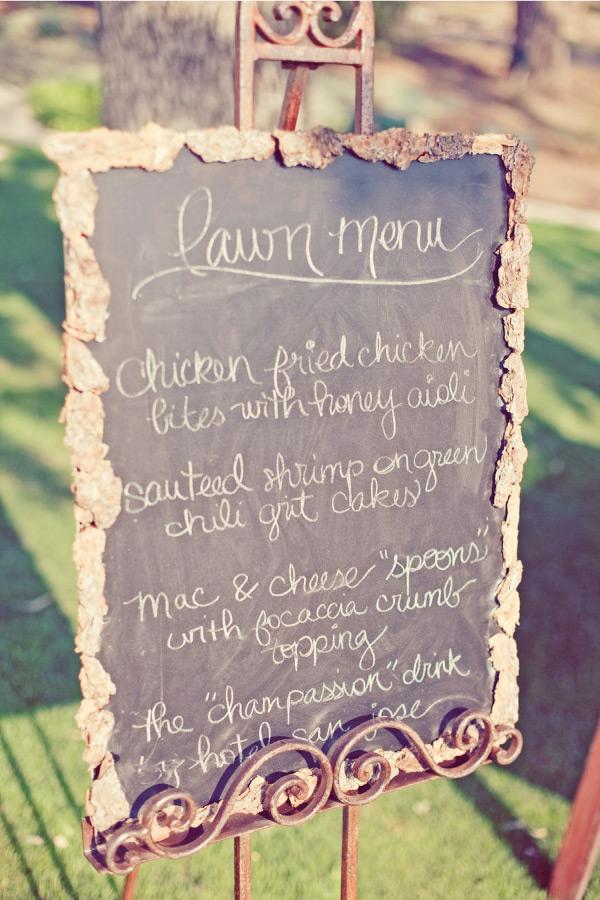 lawn menu
Chicken fried chicken
bites with honey aioli
sauteed shrimp on green
chili grit cakes
mac & cheese "spoons"
with focaccia crumb
topping
the "champassion" drink
by hotel san jose